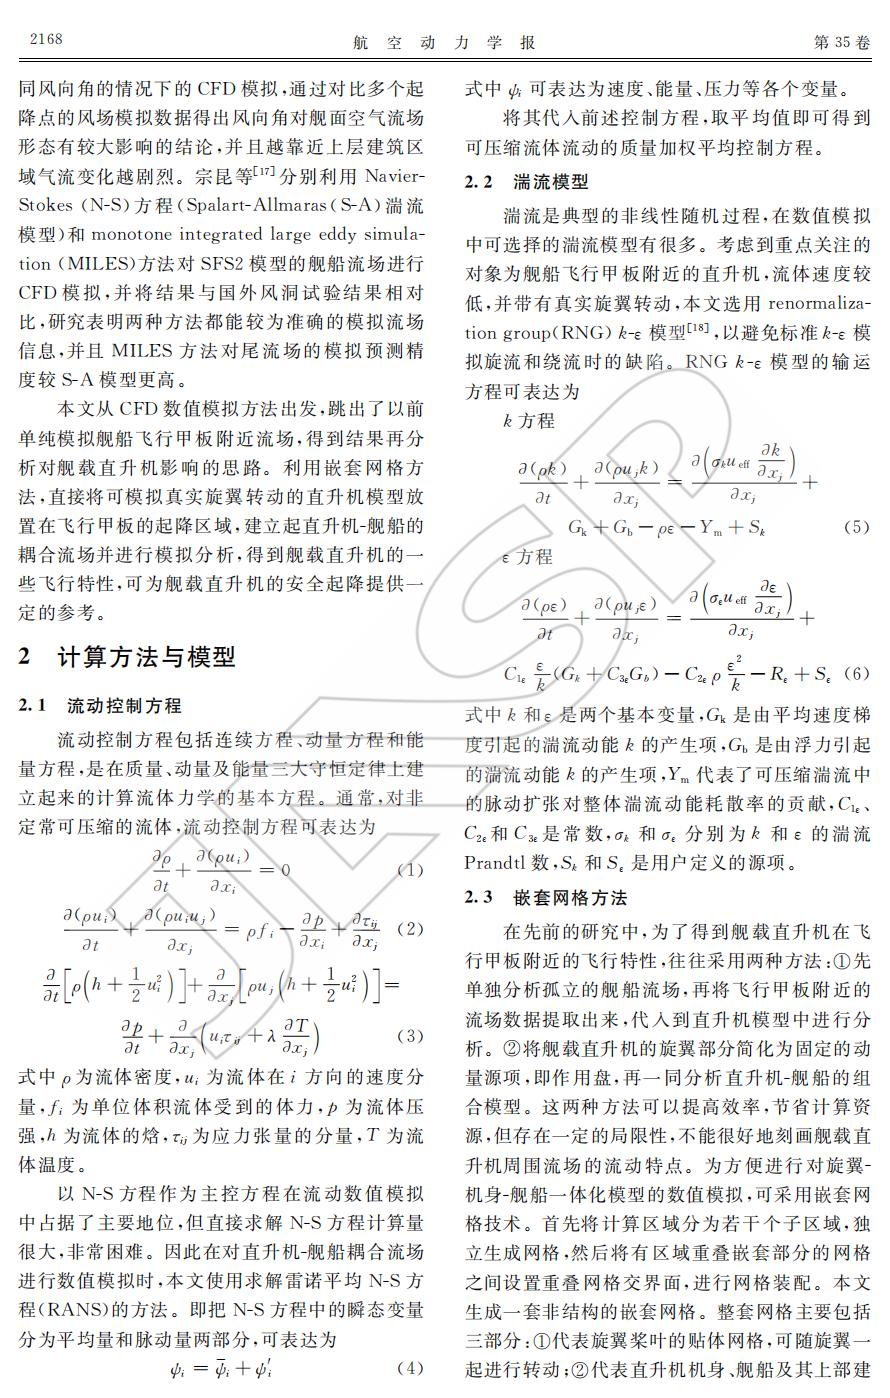 2168
航 空 动 力 学 报
第 35 卷
同风向角的情况下的 CFD 模拟,通过对比多个起
降点的风场模拟数据得出风向角对舰面空气流场
形态有较大影响的结论,并且越靠近上层建筑区
域气流变化越剧烈。宗昆等[17]分别利用 Navier-
Stokes (N-S)方程(Spalart-Allmaras(S-A)湍流
模型)和 monotone integrated large eddy simula-
tion (MILES)方法对 SFS2 模型的舰船流场进行
CFD 模拟,并将结果与国外风洞试验结果相对
比,研究表明两种方法都能较为准确的模拟流场
信息,并且 MILES 方法对尾流场的模拟预测精
度较 S-A 模型更高。
本文从 CFD 数值模拟方法出发,跳出了以前
单纯模拟舰船飞行甲板附近流场,得到结果再分
析对舰载直升机影响的思路。利用嵌套网格方
法,直接将可模拟真实旋翼转动的直升机模型放
置在飞行甲板的起降区域,建立起直升机-舰船的
耦合流场并进行模拟分析,得到舰载直升机的一
些飞行特性,可为舰载直升机的安全起降提供一
定的参考。
2 计算方法与模型
2.1 流动控制方程
流动控制方程包括连续方程、动量方程和能
量方程,是在质量、动量及能量三大守恒定律上建
立起来的计算流体力学的基本方程。通常,对非
定常可压缩的流体,流动控制方程可表达为
∂ρ/∂t + ∂(ρu_i)/∂x_i = 0 (1)
∂(ρu_i)/∂t + ∂(ρu_i u_j)/∂x_j = ρf_i − ∂p/∂x_i + ∂τ_ij/∂x_j (2)
∂/∂t[ρ(h + 1/2 u_i²)] + ∂/∂x_j[ρu_j(h + 1/2 u_i²)] =
∂p/∂t + ∂/∂x_j(u_i τ_ij + λ ∂T/∂x_j) (3)
式中 ρ 为流体密度,u_i 为流体在 i 方向的速度分
量,f_i 为单位体积流体受到的体力,p 为流体压
强,h 为流体的焓,τ_ij 为应力张量的分量,T 为流
体温度。
以 N-S 方程作为主控方程在流动数值模拟
中占据了主要地位,但直接求解 N-S 方程计算量
很大,非常困难。因此在对直升机-舰船耦合流场
进行数值模拟时,本文使用求解雷诺平均 N-S 方
程(RANS)的方法。即把 N-S 方程中的瞬态变量
分为平均量和脉动量两部分,可表达为
ψ_i = ψ̄_i + ψ′_i (4)
式中 ψ_i 可表达为速度、能量、压力等各个变量。
将其代入前述控制方程,取平均值即可得到
可压缩流体流动的质量加权平均控制方程。
2.2 湍流模型
湍流是典型的非线性随机过程,在数值模拟
中可选择的湍流模型有很多。考虑到重点关注的
对象为舰船飞行甲板附近的直升机,流体速度较
低,并带有真实旋翼转动,本文选用 renormaliza-
tion group(RNG) k-ε 模型[18],以避免标准 k-ε 模
拟旋流和绕流时的缺陷。RNG k-ε 模型的输运
方程可表达为
k 方程
∂(ρk)/∂t + ∂(ρu_j k)/∂x_j = ∂(σ_k u_eff ∂k/∂x_j)/∂x_j +
G_k + G_b − ρε − Y_m + S_k (5)
ε 方程
∂(ρε)/∂t + ∂(ρu_j ε)/∂x_j = ∂(σ_ε u_eff ∂ε/∂x_j)/∂x_j +
C_1ε ε/k (G_k + C_3ε G_b) − C_2ε ρ ε²/k − R_ε + S_ε (6)
式中 k 和 ε 是两个基本变量,G_k 是由平均速度梯
度引起的湍流动能 k 的产生项,G_b 是由浮力引起
的湍流动能 k 的产生项,Y_m 代表了可压缩湍流中
的脉动扩张对整体湍流动能耗散率的贡献,C_1ε、
C_2ε 和 C_3ε 是常数,σ_k 和 σ_ε 分别为 k 和 ε 的湍流
Prandtl 数,S_k 和 S_ε 是用户定义的源项。
2.3 嵌套网格方法
在先前的研究中,为了得到舰载直升机在飞
行甲板附近的飞行特性,往往采用两种方法:①先
单独分析孤立的舰船流场,再将飞行甲板附近的
流场数据提取出来,代入到直升机模型中进行分
析。②将舰载直升机的旋翼部分简化为固定的动
量源项,即作用盘,再一同分析直升机-舰船的组
合模型。这两种方法可以提高效率,节省计算资
源,但存在一定的局限性,不能很好地刻画舰载直
升机周围流场的流动特点。为方便进行对旋翼-
机身-舰船一体化模型的数值模拟,可采用嵌套网
格技术。首先将计算区域分为若干个子区域,独
立生成网格,然后将有区域重叠嵌套部分的网格
之间设置重叠网格交界面,进行网格装配。本文
生成一套非结构的嵌套网格。整套网格主要包括
三部分:①代表旋翼桨叶的贴体网格,可随旋翼一
起进行转动;②代表直升机机身、舰船及其上部建
JASP